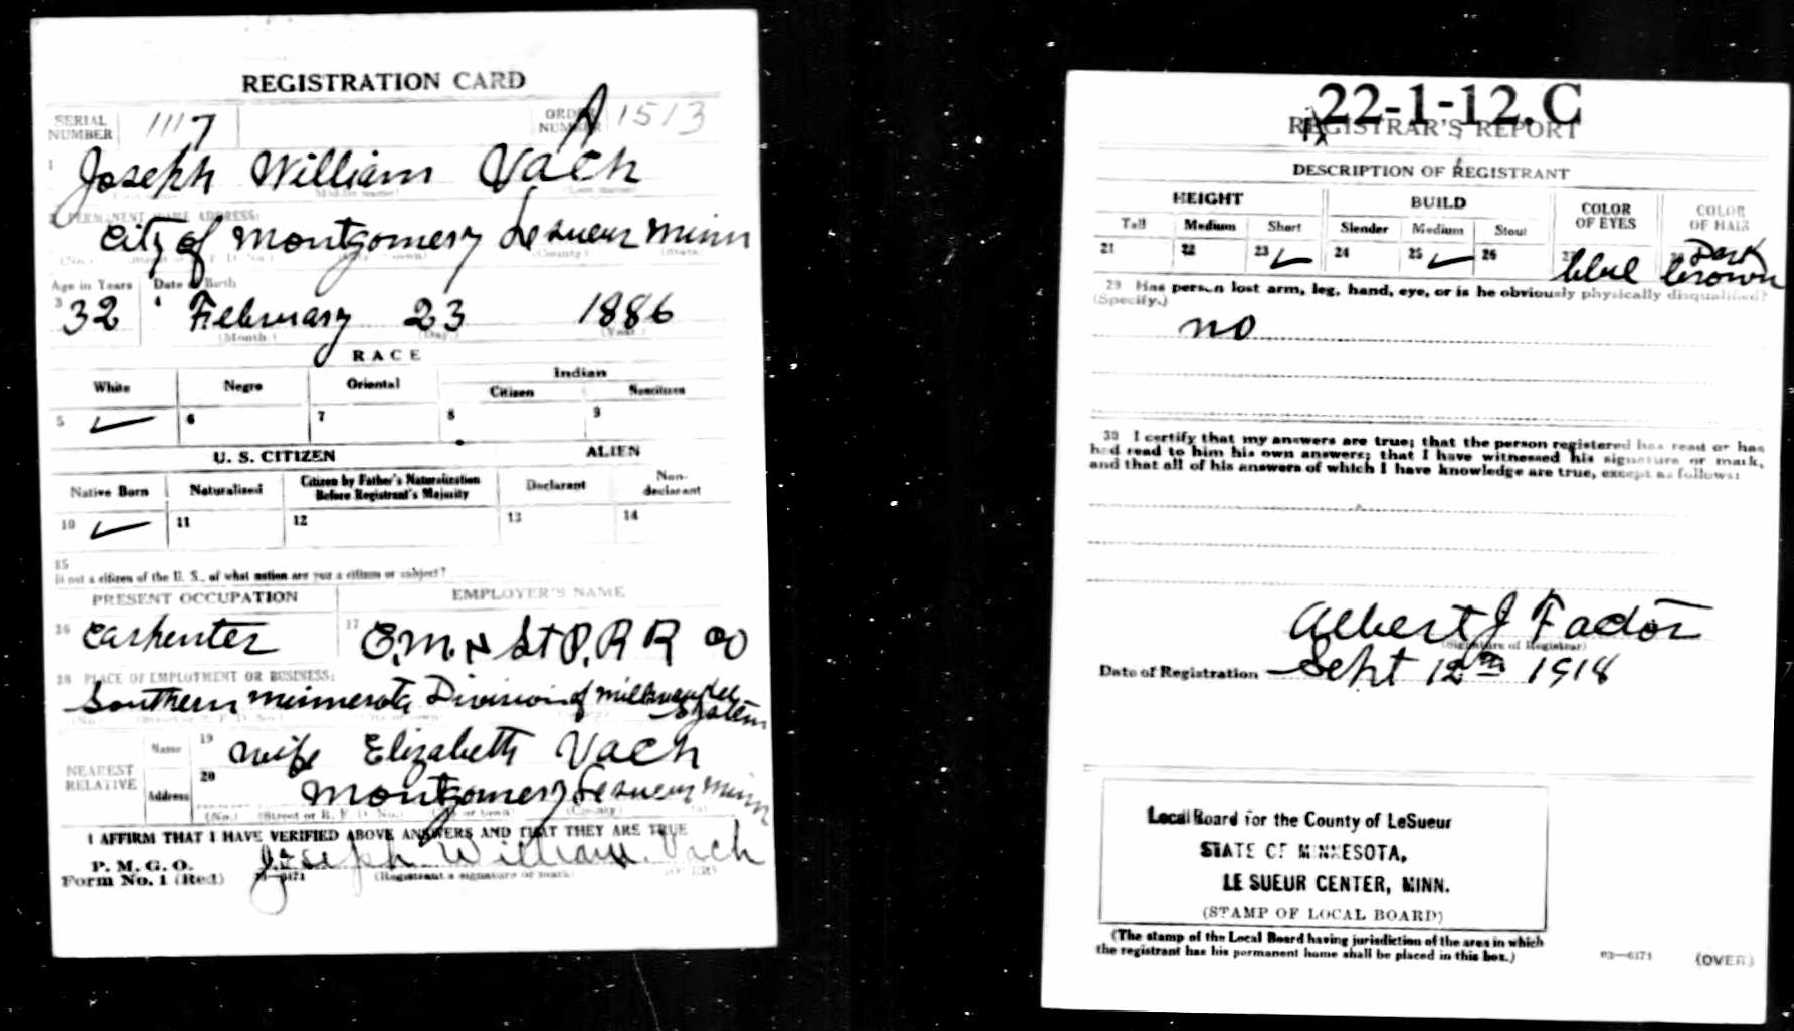 REGISTRATION CARD
SERIAL NUMBER 1117 ORDER NUMBER A 1513
1 Joseph William Vach
2 PERMANENT HOME ADDRESS:
City of Montgomery Le Sueur Minn
Age in Years Date of Birth
3 32 4 February 23 1886
(Month.) (Day.) (Year.)
RACE
White Negro Oriental Indian
Citizen Noncitizen
5 ✓ 6 7 8 9
U. S. CITIZEN ALIEN
Native Born Naturalized Citizen by Father's Naturalization Before Registrant's Majority Declarant Non-declarant
10 ✓ 11 12 13 14
15
If not a citizen of the U. S., of what nation are you a citizen or subject?
PRESENT OCCUPATION EMPLOYER'S NAME
16 Carpenter 17 C.M. & St P. R R Co
18 PLACE OF EMPLOYMENT OR BUSINESS:
Southern Minnesota Division of Milwaukee System
NEAREST RELATIVE Name 19 wife Elizabeth Vach
Address 20 Montgomery Le Sueur Minn
(No.) (Street or R. F. D. No.) (City or town) (County)
I AFFIRM THAT I HAVE VERIFIED ABOVE ANSWERS AND THAT THEY ARE TRUE
P. M. G. O.
Form No. 1 (Red) Joseph William Vach
(Registrant's signature or mark) (OVER)
22-1-12. C
REGISTRAR'S REPORT
DESCRIPTION OF REGISTRANT
HEIGHT BUILD COLOR OF EYES COLOR OF HAIR
Tall Medium Short Slender Medium Stout
21 22 23 ✓ 24 25 ✓ 26 27 blue 28 Dark brown
29 Has person lost arm, leg, hand, eye, or is he obviously physically disqualified?
(Specify.)
no
30 I certify that my answers are true; that the person registered has read or has
had read to him his own answers; that I have witnessed his signature or mark,
and that all of his answers of which I have knowledge are true, except as follows:
Albert J Fador
(Signature of Registrar)
Date of Registration Sept 12th 1918
Local Board for the County of LeSueur
STATE OF MINNESOTA,
LE SUEUR CENTER, MINN.
(STAMP OF LOCAL BOARD)
(The stamp of the Local Board having jurisdiction of the area in which
the registrant has his permanent home shall be placed in this box.)
03—6171 (OVER)